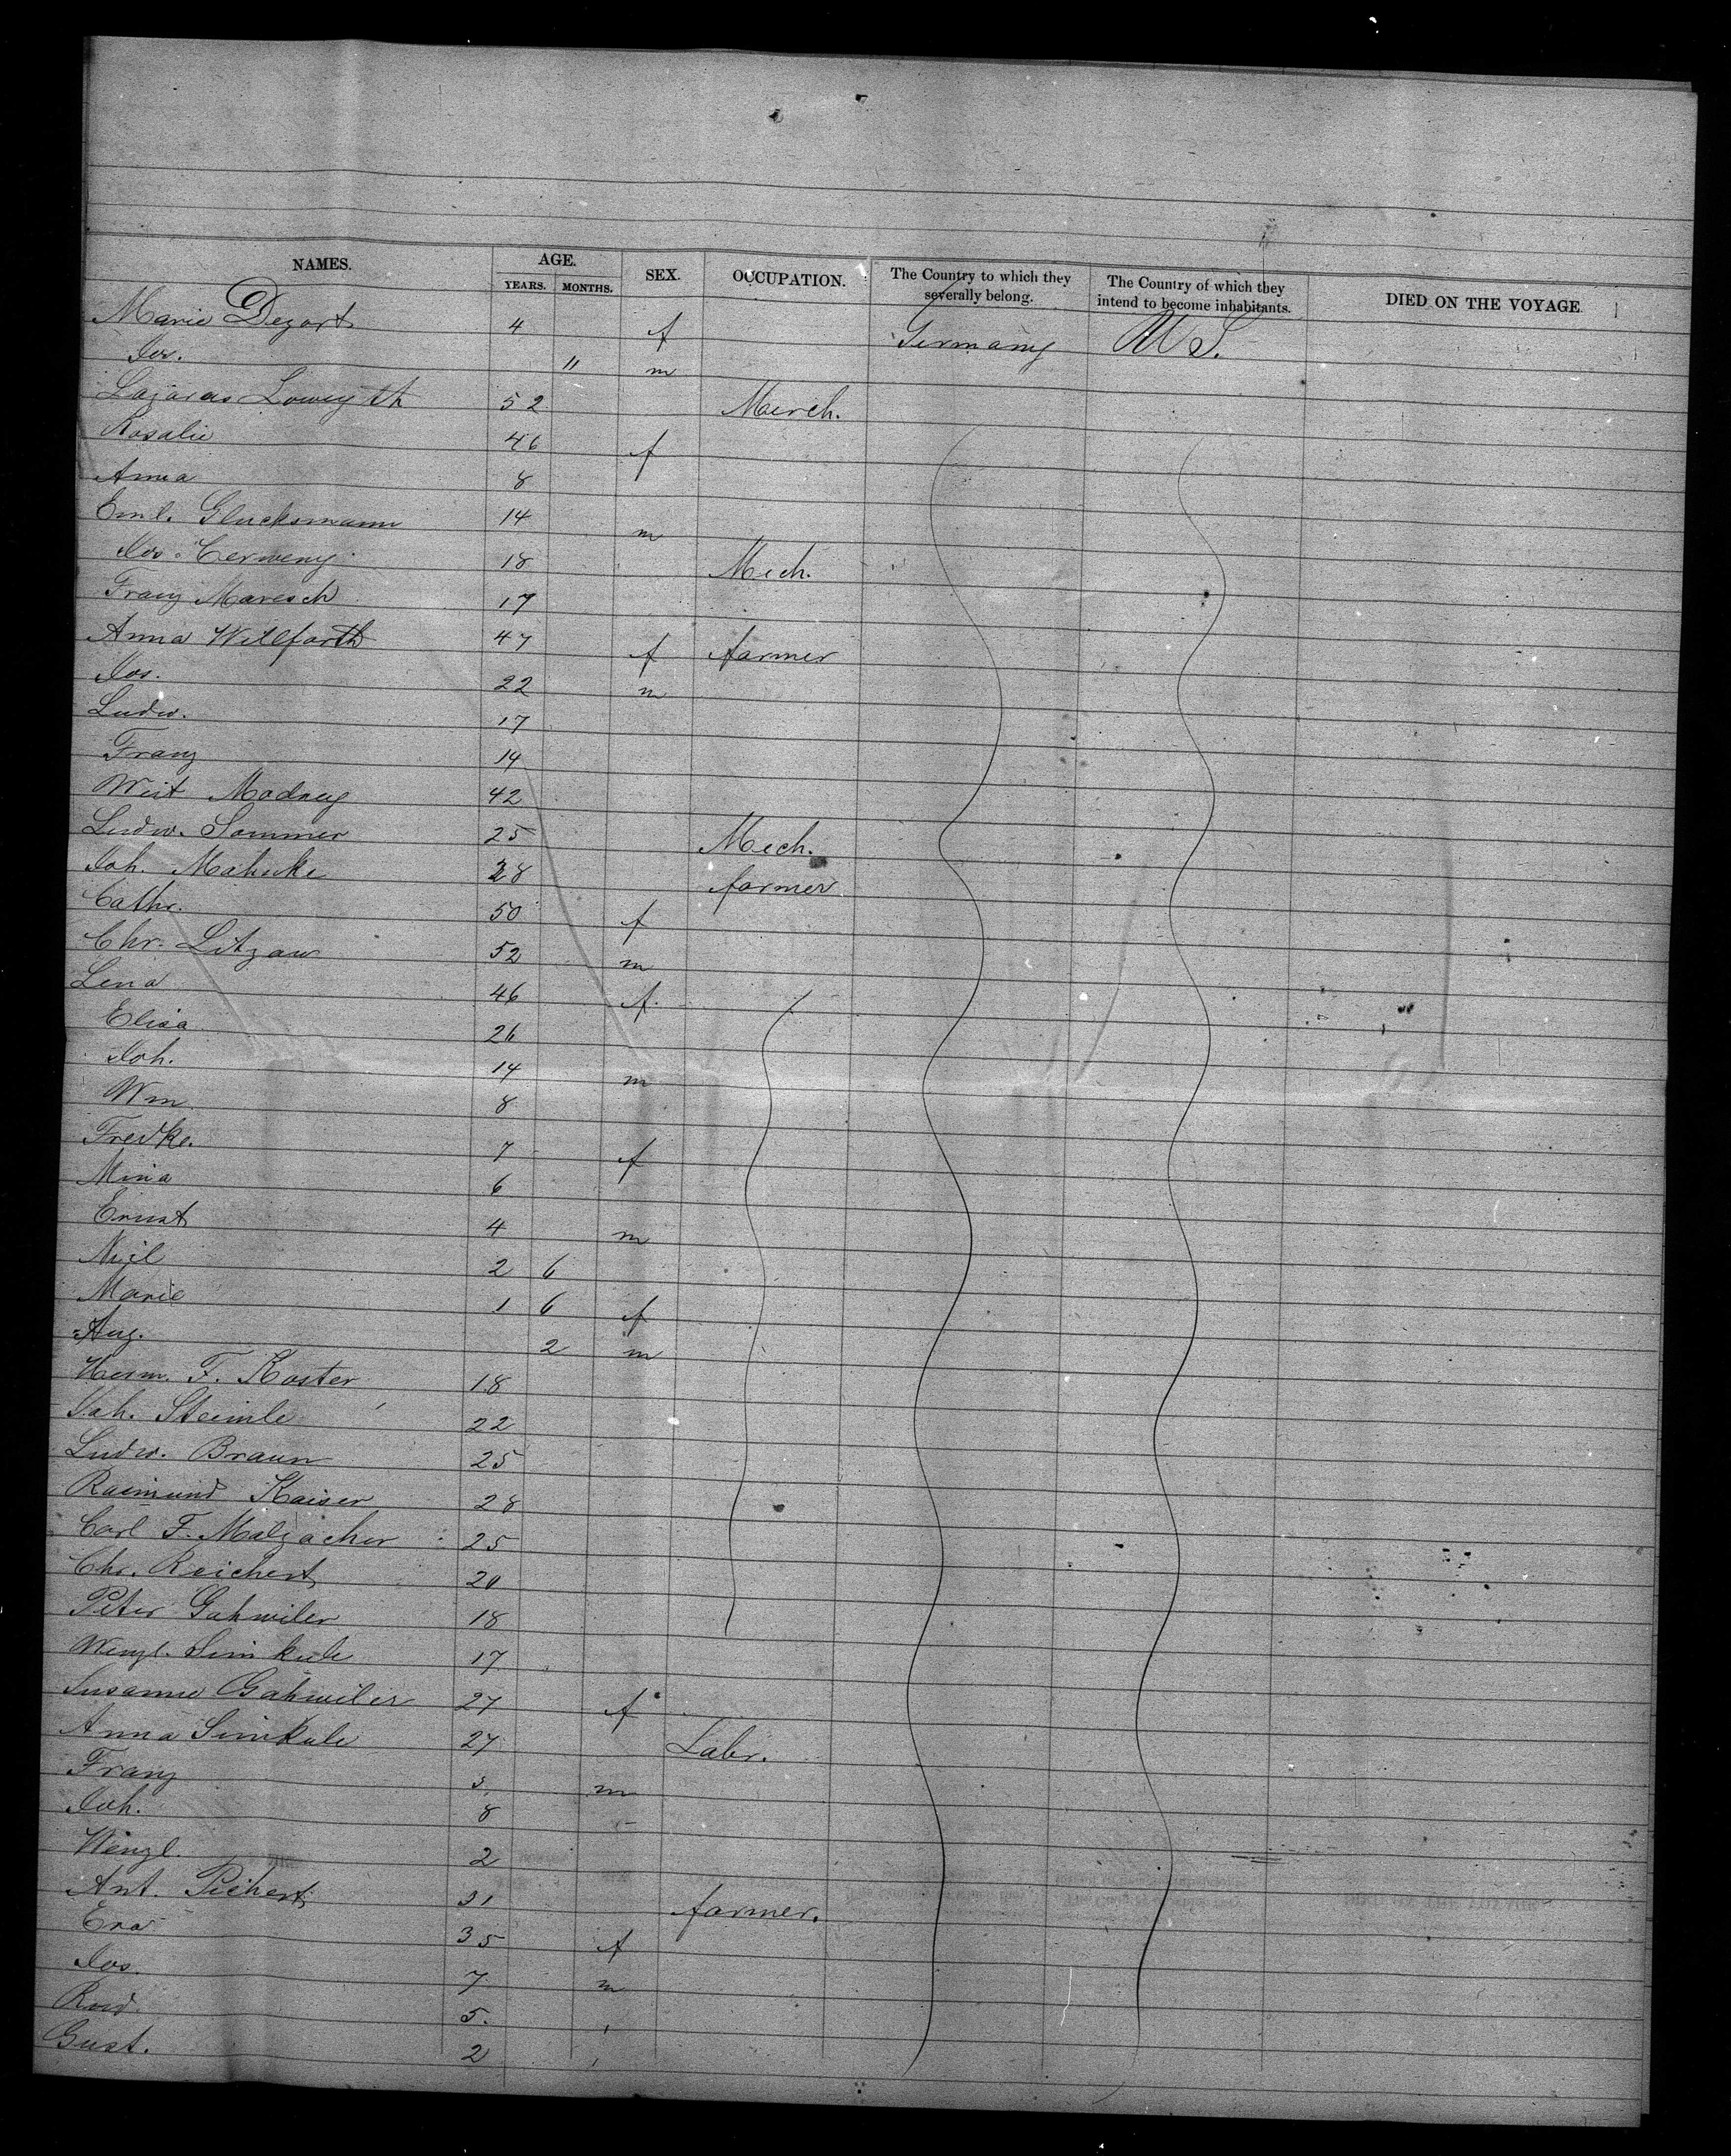 NAMES. AGE. SEX. OCCUPATION. The Country to which they severally belong. The Country of which they intend to become inhabitants. DIED ON THE VOYAGE
YEARS. MONTHS.
Marie Dezort 4 f Germany U S.
Jos. 11 m
Lazarus 52 Merch.
Rosalie 46 f
Anna 8
Eml. Glucksmann 14 m
Jos. Cerweny 18 Mech.
Franz Maresch 17
Anna Willforth 47 f farmer
Jos. 22 m
Ludw. 17
Franz 14
Weit Modney 42
Ludw. Sommer 25 Mech.
Joh. Mahnke 28 farmer
Cathr. 50 f
Chr. Litzau 52 m
Lena 46 f
Elisa 26
Joh. 14 m
Wm 8
Fredke. 7 f
Mina 6
Ernst 4 m
2 6
Marie 1 6 f
Aug. 2 m
Herm. F. Koster 18
Joh. Steimle 22
Ludw. Braun 25
Raimund Kaiser 28
Carl F. Malzacher 25
Chr. Reichert 20
Peter Gahwiler 18
Wenzl. Simkule 17
Susanne Gahwiler 27 f
Anna Simkule 27 Labr.
Franz m
Joh. 8
Wenzl. 2
Ant. Pichert 31 farmer.
Eva 35 f
Jos. 7 m
Rud. 5.
Gust. 2